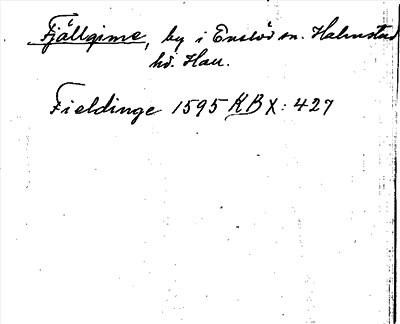 Fjällgime, by i Enslöv sn. Halmstad
hd. Hall.
Fieldinge 1595 KB X: 427